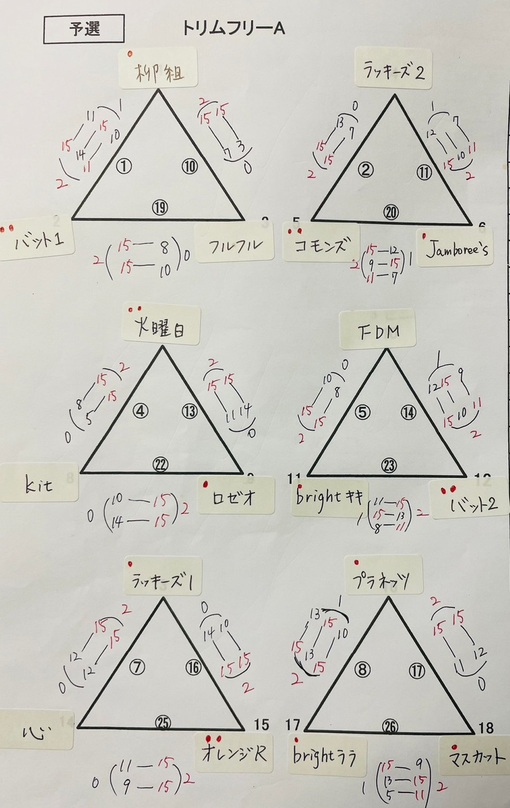 予選
トリムフリーA
柳組
ラッキーズ2
2 11 1
15 15 10
14
15 11
2
2
15 15
7 3
0
0
13 7
15
15
2
1 7
12 15
15 10 11
2
① ⑩ ② ⑪
⑲ ⑳
5 6
バット1
フルフル
コモンズ
Jamboree's
2 (15 — 8
15 — 10) 0
2 (15 — 12
9 — 15
11 — 7) 1
火曜日
FDM
2
15
8 15
5
0
2
15 15
11 14
0
0
10 8
15
15
2
1 9
12 15
15 10 11
2
④ ⑬ ⑤ ⑭
㉒ ㉓
11 12
kit
ロゼオ
brightキキ
バット2
0 (10 — 15
14 — 15) 2
1 (11 — 15
15 — 13
8 — 11) 2
ラッキーズ1
プラネッツ
2
15
12 15
12
0
0
14 10
15 15
2
13 1
15 15 10
13
15
2
2
15 15
11 12
0
⑦ ⑯ ⑧ ⑰
㉕ ㉖
14 15 17 18
心
オレンジR
brightララ
マスカット
0 (11 — 15
9 — 15) 2
1 (15 — 9
13 — 15
5 — 11) 2